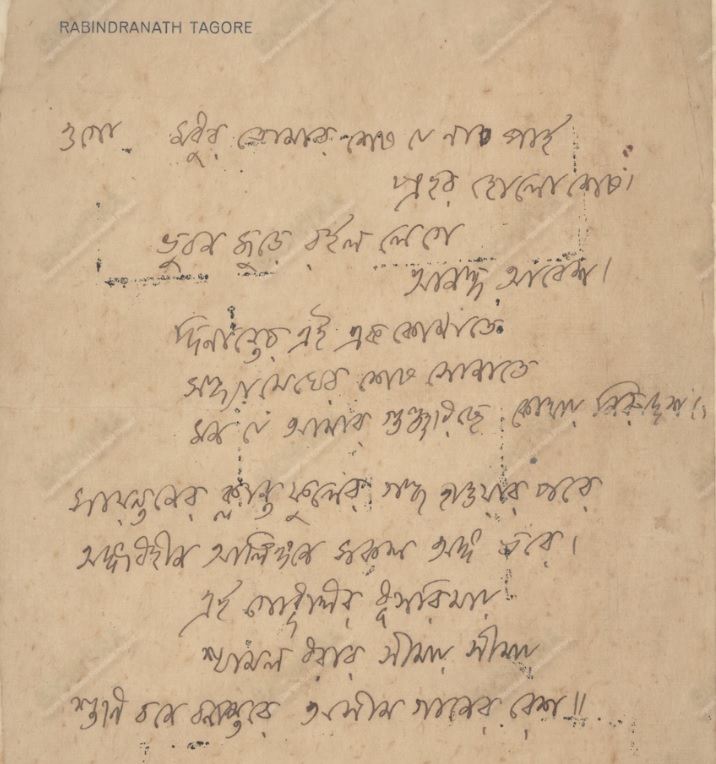 RABINDRANATH TAGORE
ওগো মধুর তোমার শেষ যে না পাই
প্রহর হোলো শেষ।
ভুবন জুড়ে রইল লেগে
আনন্দ আবেশ।
দিনান্তের এই এক কোণাতে
সন্ধ্যামেঘের শেষ সোনাতে
মন যে আমার গুঞ্জরিছে কোথায় নিরুদ্দেশ।
সায়ন্তনের ক্লান্ত ফুলের গন্ধ হাওয়ার পরে
অঙ্গবিহীন আলিঙ্গনে সকল অঙ্গ ভরে।
এই গোধূলির ধূসরিমায়
শ্যামল ধরার সীমায় সীমায়
শুনি বনে বনান্তরে অসীম গানের রেশ॥